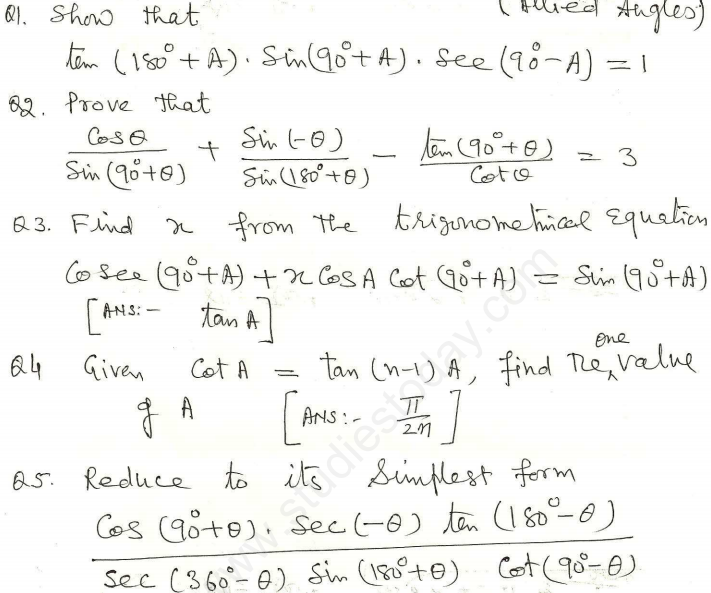 Q1. Show that (Allied Angles)
tan (180° + A). Sin(90° + A) . Sec (90° - A) = 1
Q2. Prove that
Cosθ / Sin(90°+θ) + Sin(-θ) / Sin(180°+θ) - tan(90°+θ) / Cotθ = 3
Q3. Find x from the trigonometrical Equation
Cosec (90°+A) + x CosA Cot (90°+A) = Sin (90°+A)
[ANS:- tan A]
Q4 Given Cot A = tan (n-1) A, find The one value
of A [ANS:- π/2n]
Q5. Reduce to its Simplest form
Cos (90°+θ). Sec (-θ) tan (180°-θ)
Sec (360°-θ) Sin (180°+θ) Cot (90°-θ)
www.studiestoday.com